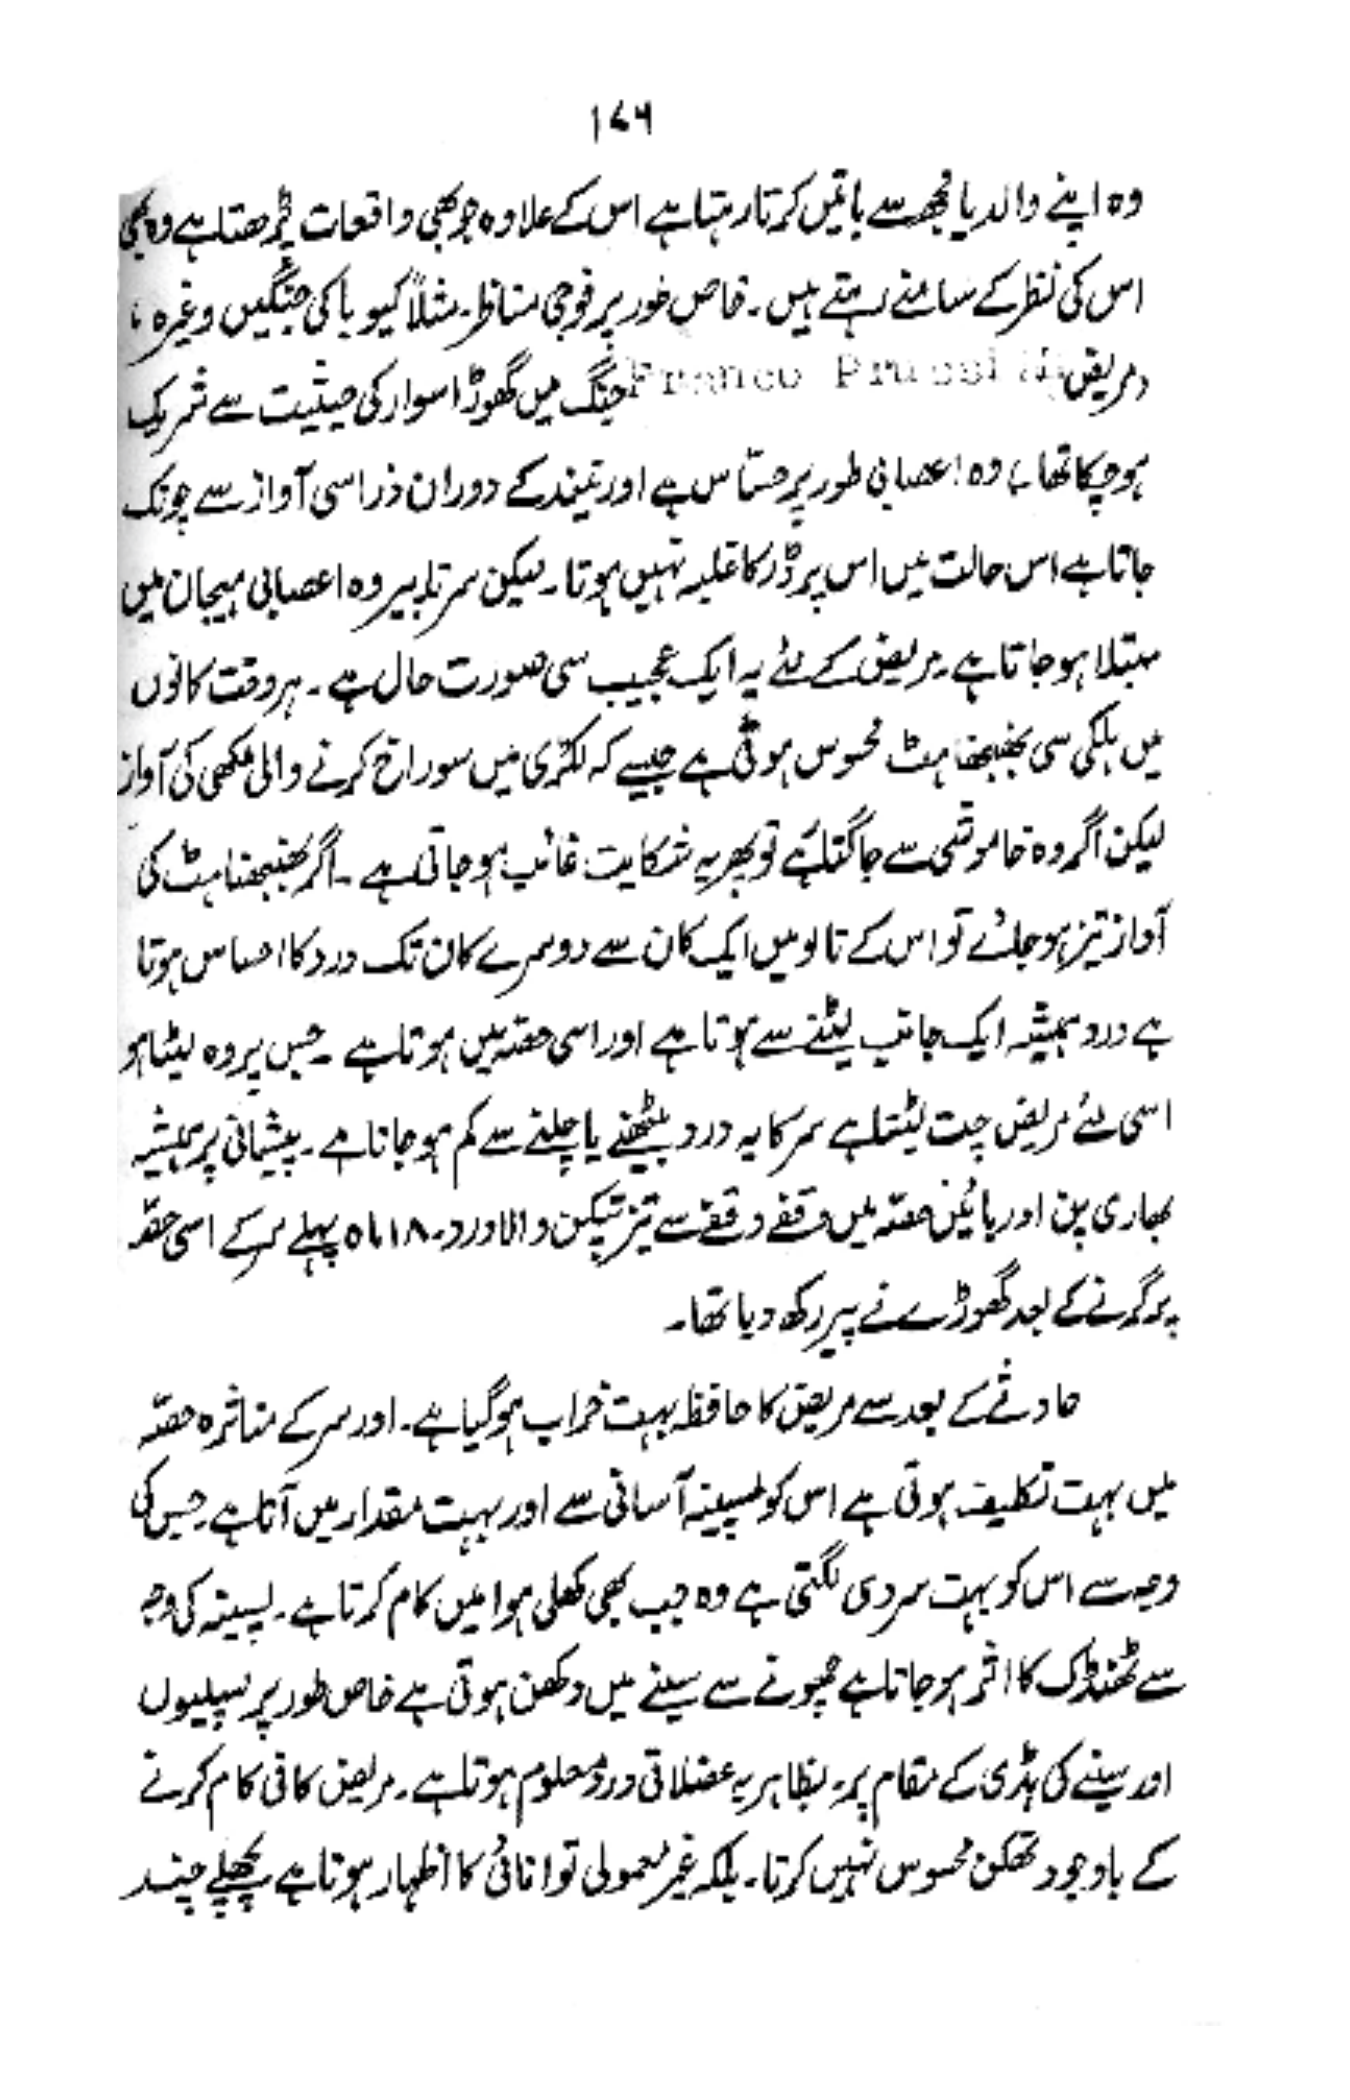 ۱۷۶
وہ اپنے والد یا مجھ سے باتیں کرتا رہتا ہے اس کے علاوہ جو بھی واقعات پڑھتا ہے وہ بھی
اس کی نظر کے سامنے رہتے ہیں۔ خاص طور پر فوجی مناظر۔ مثلاً کیوبا کی جنگیں وغیرہ،
(مریض Franco Prussian جنگ میں گھوڑا سوار کی حیثیت سے شریک
ہو چکا تھا) وہ اعصابی طور پر حسّاس ہے اور نیند کے دوران ذرا سی آواز سے چونک
جاتا ہے اس حالت میں اس پر ڈر کا غلبہ نہیں ہوتا۔ لیکن سر تا پیر وہ اعصابی ہیجان میں
مبتلا ہو جاتا ہے۔ مریض کے لئے یہ ایک عجیب سی صورت حال ہے۔ ہر وقت کانوں
میں ہلکی سی بھنبھناہٹ محسوس ہوتی ہے جیسے کہ لکڑی میں سوراخ کرنے والی مکھی کی آواز
لیکن اگر وہ خاموشی سے جاگتا ہے تو پھر یہ شکایت غائب ہو جاتی ہے۔ اگر بھنبھناہٹ کی
آواز تیز ہو جائے تو اس کے تالو میں ایک کان سے دوسرے کان تک درد کا احساس ہوتا
ہے درد ہمیشہ ایک جانب لیٹنے سے ہوتا ہے اور اسی حصّہ میں ہوتا ہے۔ جس پر وہ لیٹا ہو
اسی لئے مریض چت لیٹتا ہے سر کا یہ درد بیٹھنے یا چلنے سے کم ہو جاتا ہے۔ پیشانی پر ہمیشہ
بھاری پن اور بائیں حصّہ میں وقفے وقفے سے تیز ٹپکن والا درد۔ ۱۸ ماہ پہلے سر کے اسی حصّہ
پر گرنے کے بعد گھوڑے نے پیر رکھ دیا تھا۔
حادثے کے بعد سے مریض کا حافظہ بہت خراب ہو گیا ہے۔ اور سر کے متاثرہ حصّہ
میں بہت تکلیف ہوتی ہے اس کو پسینہ آسانی سے اور بہت مقدار میں آتا ہے جس کی
وجہ سے اس کو بہت سردی لگتی ہے وہ جب بھی کھلی ہوا میں کام کرتا ہے۔ پسینہ کی وجہ
سے ٹھنڈک کا اثر ہو جاتا ہے چھونے سے سینے میں دکھن ہوتی ہے خاص طور پر پسلیوں
اور سینے کی ہڈی کے مقام پر۔ بظاہر یہ عضلاتی درد معلوم ہوتا ہے۔ مریض کافی کام کرنے
کے باوجود تھکن محسوس نہیں کرتا۔ بلکہ غیر معمولی توانائی کا اظہار ہوتا ہے پچھلے چند